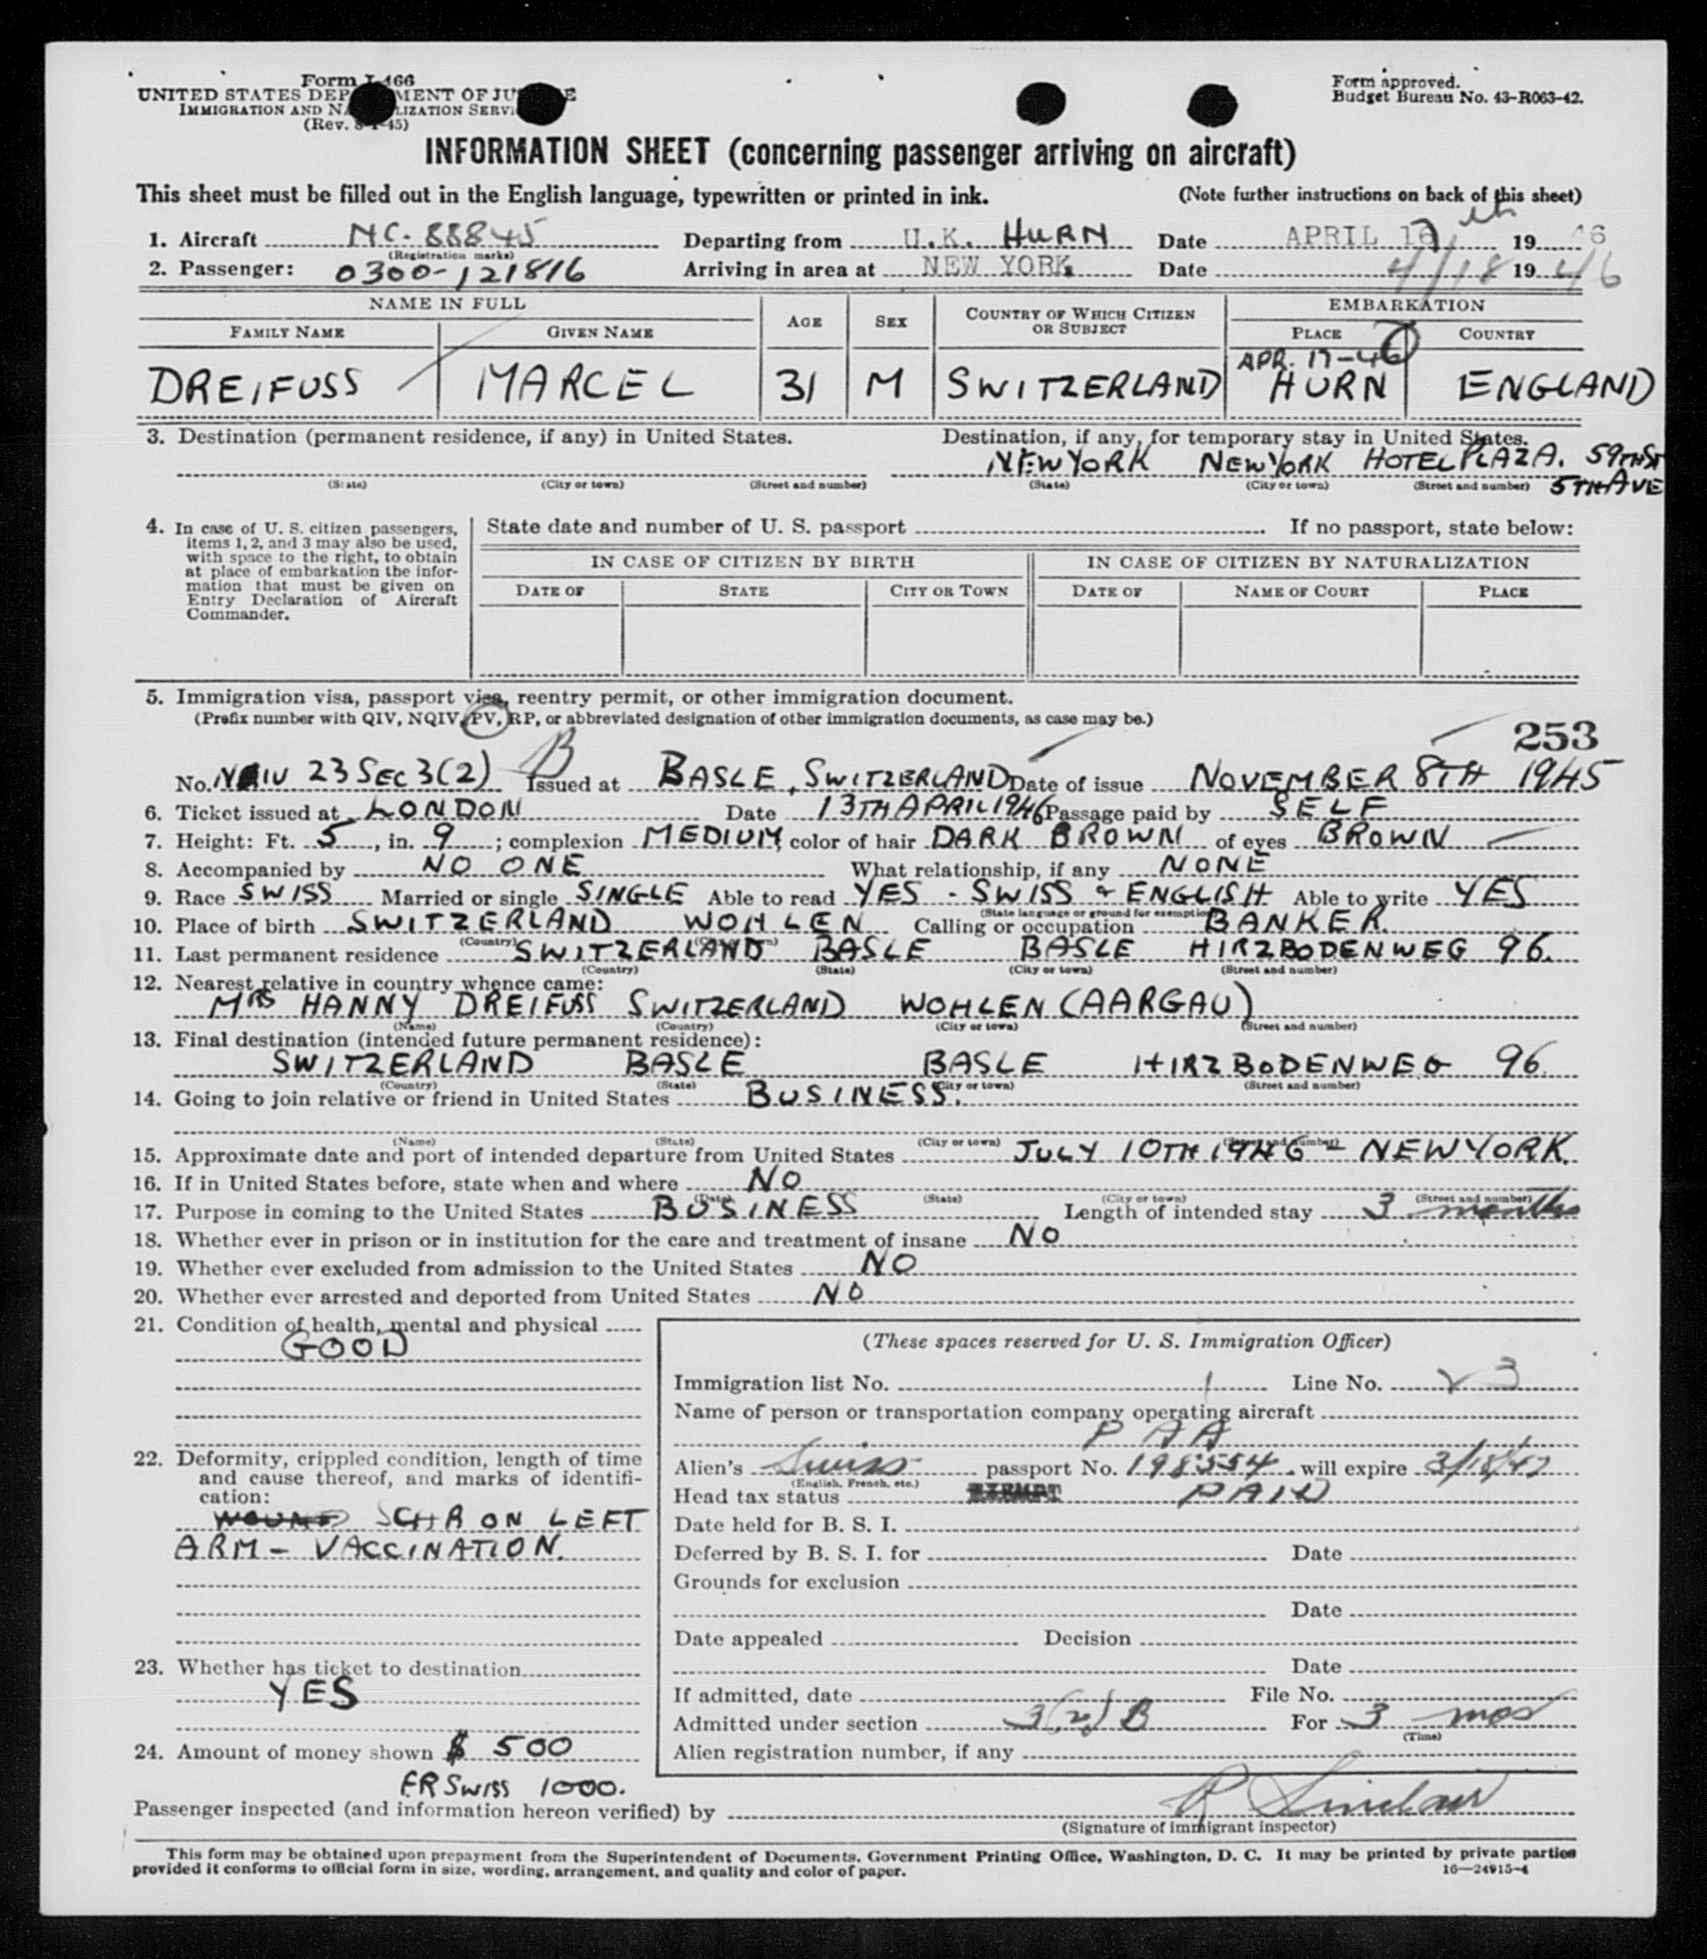 Form I-466
UNITED STATES DEPARTMENT OF JUSTICE
IMMIGRATION AND NATURALIZATION SERVICE
(Rev. 8-1-45)
Form approved.
Budget Bureau No. 43-R063-42.
INFORMATION SHEET (concerning passenger arriving on aircraft)
This sheet must be filled out in the English language, typewritten or printed in ink. (Note further instructions on back of this sheet)
1. Aircraft NC-88845 Departing from U.K. HURN Date APRIL 17th 1946
(Registration marks)
2. Passenger: 0300-121816 Arriving in area at NEW YORK Date 4/18 1946
NAME IN FULL AGE SEX COUNTRY OF WHICH CITIZEN OR SUBJECT EMBARKATION
FAMILY NAME GIVEN NAME PLACE COUNTRY
APR. 17-46
DREIFUSS MARCEL 31 M SWITZERLAND HURN ENGLAND
3. Destination (permanent residence, if any) in United States. Destination, if any, for temporary stay in United States.
NEW YORK NEW YORK HOTEL PLAZA. 59TH ST
5TH AVE
(State) (City or town) (Street and number) (State) (City or town) (Street and number)
4. In case of U. S. citizen passengers, items 1, 2, and 3 may also be used, with space to the right, to obtain at place of embarkation the information that must be given on Entry Declaration of Aircraft Commander.
State date and number of U. S. passport If no passport, state below:
IN CASE OF CITIZEN BY BIRTH IN CASE OF CITIZEN BY NATURALIZATION
DATE OF STATE CITY OR TOWN DATE OF NAME OF COURT PLACE
5. Immigration visa, passport visa, reentry permit, or other immigration document.
(Prefix number with QIV, NQIV, PV, RP, or abbreviated designation of other immigration documents, as case may be.)
253
No. 23 SEC 3(2) B Issued at BASLE, SWITZERLAND Date of issue NOVEMBER 8TH 1945
6. Ticket issued at LONDON Date 13TH APRIL 1946 Passage paid by SELF
7. Height: Ft. 5, in. 9; complexion MEDIUM, color of hair DARK BROWN of eyes BROWN
8. Accompanied by NO ONE What relationship, if any NONE
9. Race SWISS Married or single SINGLE Able to read YES - SWISS & ENGLISH Able to write YES
(State language or ground for exemption)
10. Place of birth SWITZERLAND WOHLEN Calling or occupation BANKER.
(Country)
11. Last permanent residence SWITZERLAND BASLE BASLE HIRZBODENWEG 96.
(Country) (State) (City or town) (Street and number)
12. Nearest relative in country whence came:
MRS HANNY DREIFUSS SWITZERLAND WOHLEN (AARGAU)
(Name) (Country) (City or town) (Street and number)
13. Final destination (intended future permanent residence):
SWITZERLAND BASLE BASLE HIRZBODENWEG 96.
(Country) (State) (City or town) (Street and number)
14. Going to join relative or friend in United States BUSINESS.
(Name) (State) (City or town) (Street and number)
15. Approximate date and port of intended departure from United States JULY 10TH 1946 - NEW YORK.
16. If in United States before, state when and where NO
(Date) (State) (City or town) (Street and number)
17. Purpose in coming to the United States BUSINESS Length of intended stay 3 months
18. Whether ever in prison or in institution for the care and treatment of insane NO
19. Whether ever excluded from admission to the United States NO
20. Whether ever arrested and deported from United States NO
21. Condition of health, mental and physical
GOOD
22. Deformity, crippled condition, length of time and cause thereof, and marks of identification:
WOUND SCAR ON LEFT
ARM - VACCINATION.
23. Whether has ticket to destination
YES
24. Amount of money shown $ 500
FR SWISS 1000.
(These spaces reserved for U. S. Immigration Officer)
Immigration list No. 1 Line No. 23
Name of person or transportation company operating aircraft
PAA
Alien's Swiss passport No. 198554, will expire
(English, French, etc.)
Head tax status PAID
Date held for B. S. I.
Deferred by B. S. I. for Date
Grounds for exclusion
Date
Date appealed Decision
Date
If admitted, date File No.
Admitted under section 3(2) B For 3 mos
(Time)
Alien registration number, if any
Passenger inspected (and information hereon verified) by R Sinclair
(Signature of immigrant inspector)
This form may be obtained upon prepayment from the Superintendent of Documents, Government Printing Office, Washington, D. C. It may be printed by private parties
provided it conforms to official form in size, wording, arrangement, and quality and color of paper. 16—24915-4